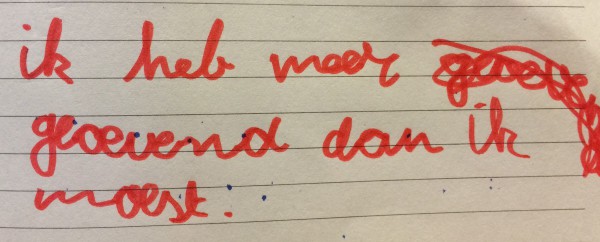 ik heb meer
geoevend dan ik
moest.